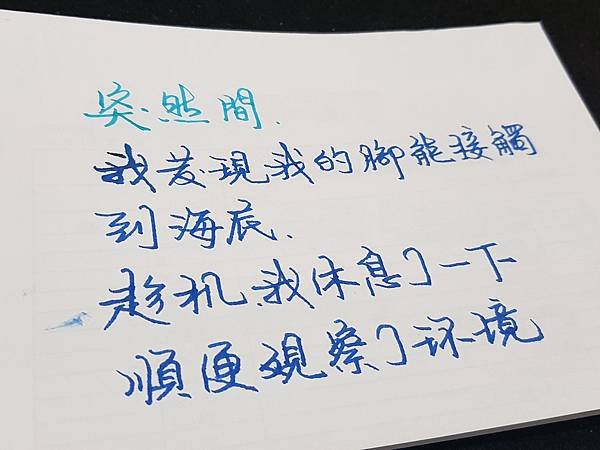 突然間.
我发現我的腳能接觸
到海底.
趁机,我休息了一下
順便觀察了环境